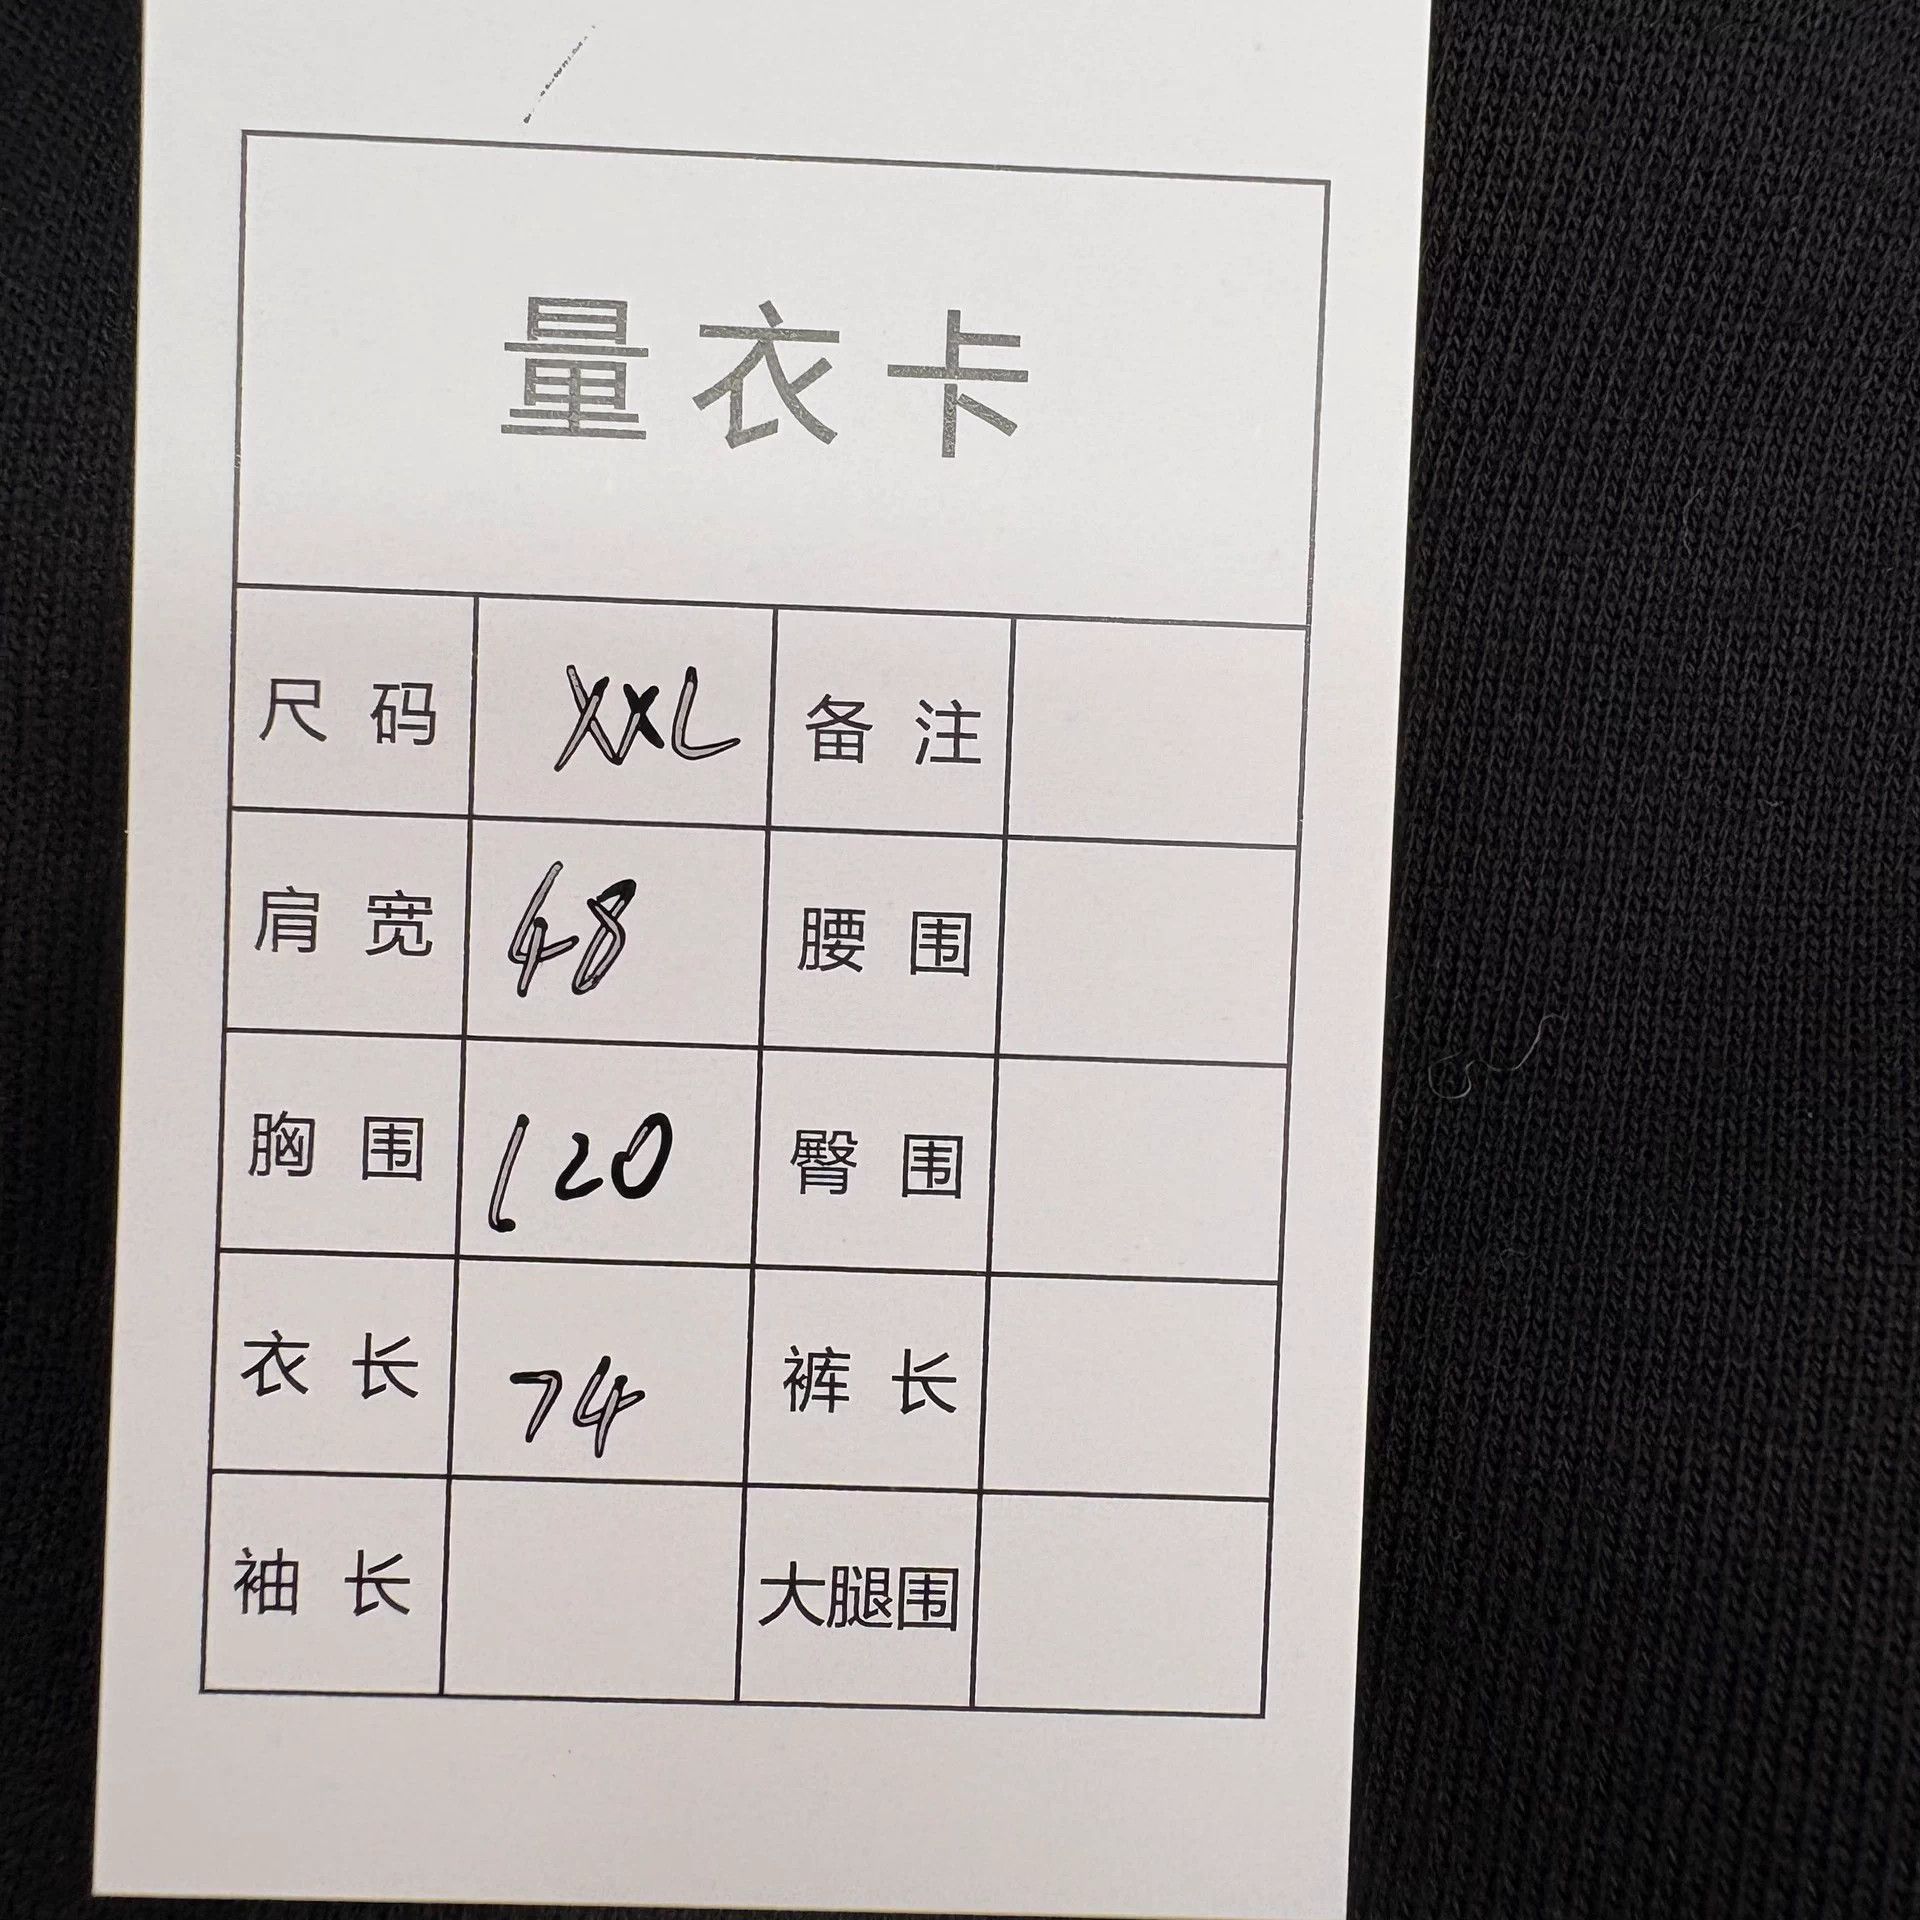 量衣卡
尺码 XXL 备注
肩宽 48 腰围
胸围 120 臀围
衣长 74 裤长
袖长 大腿围